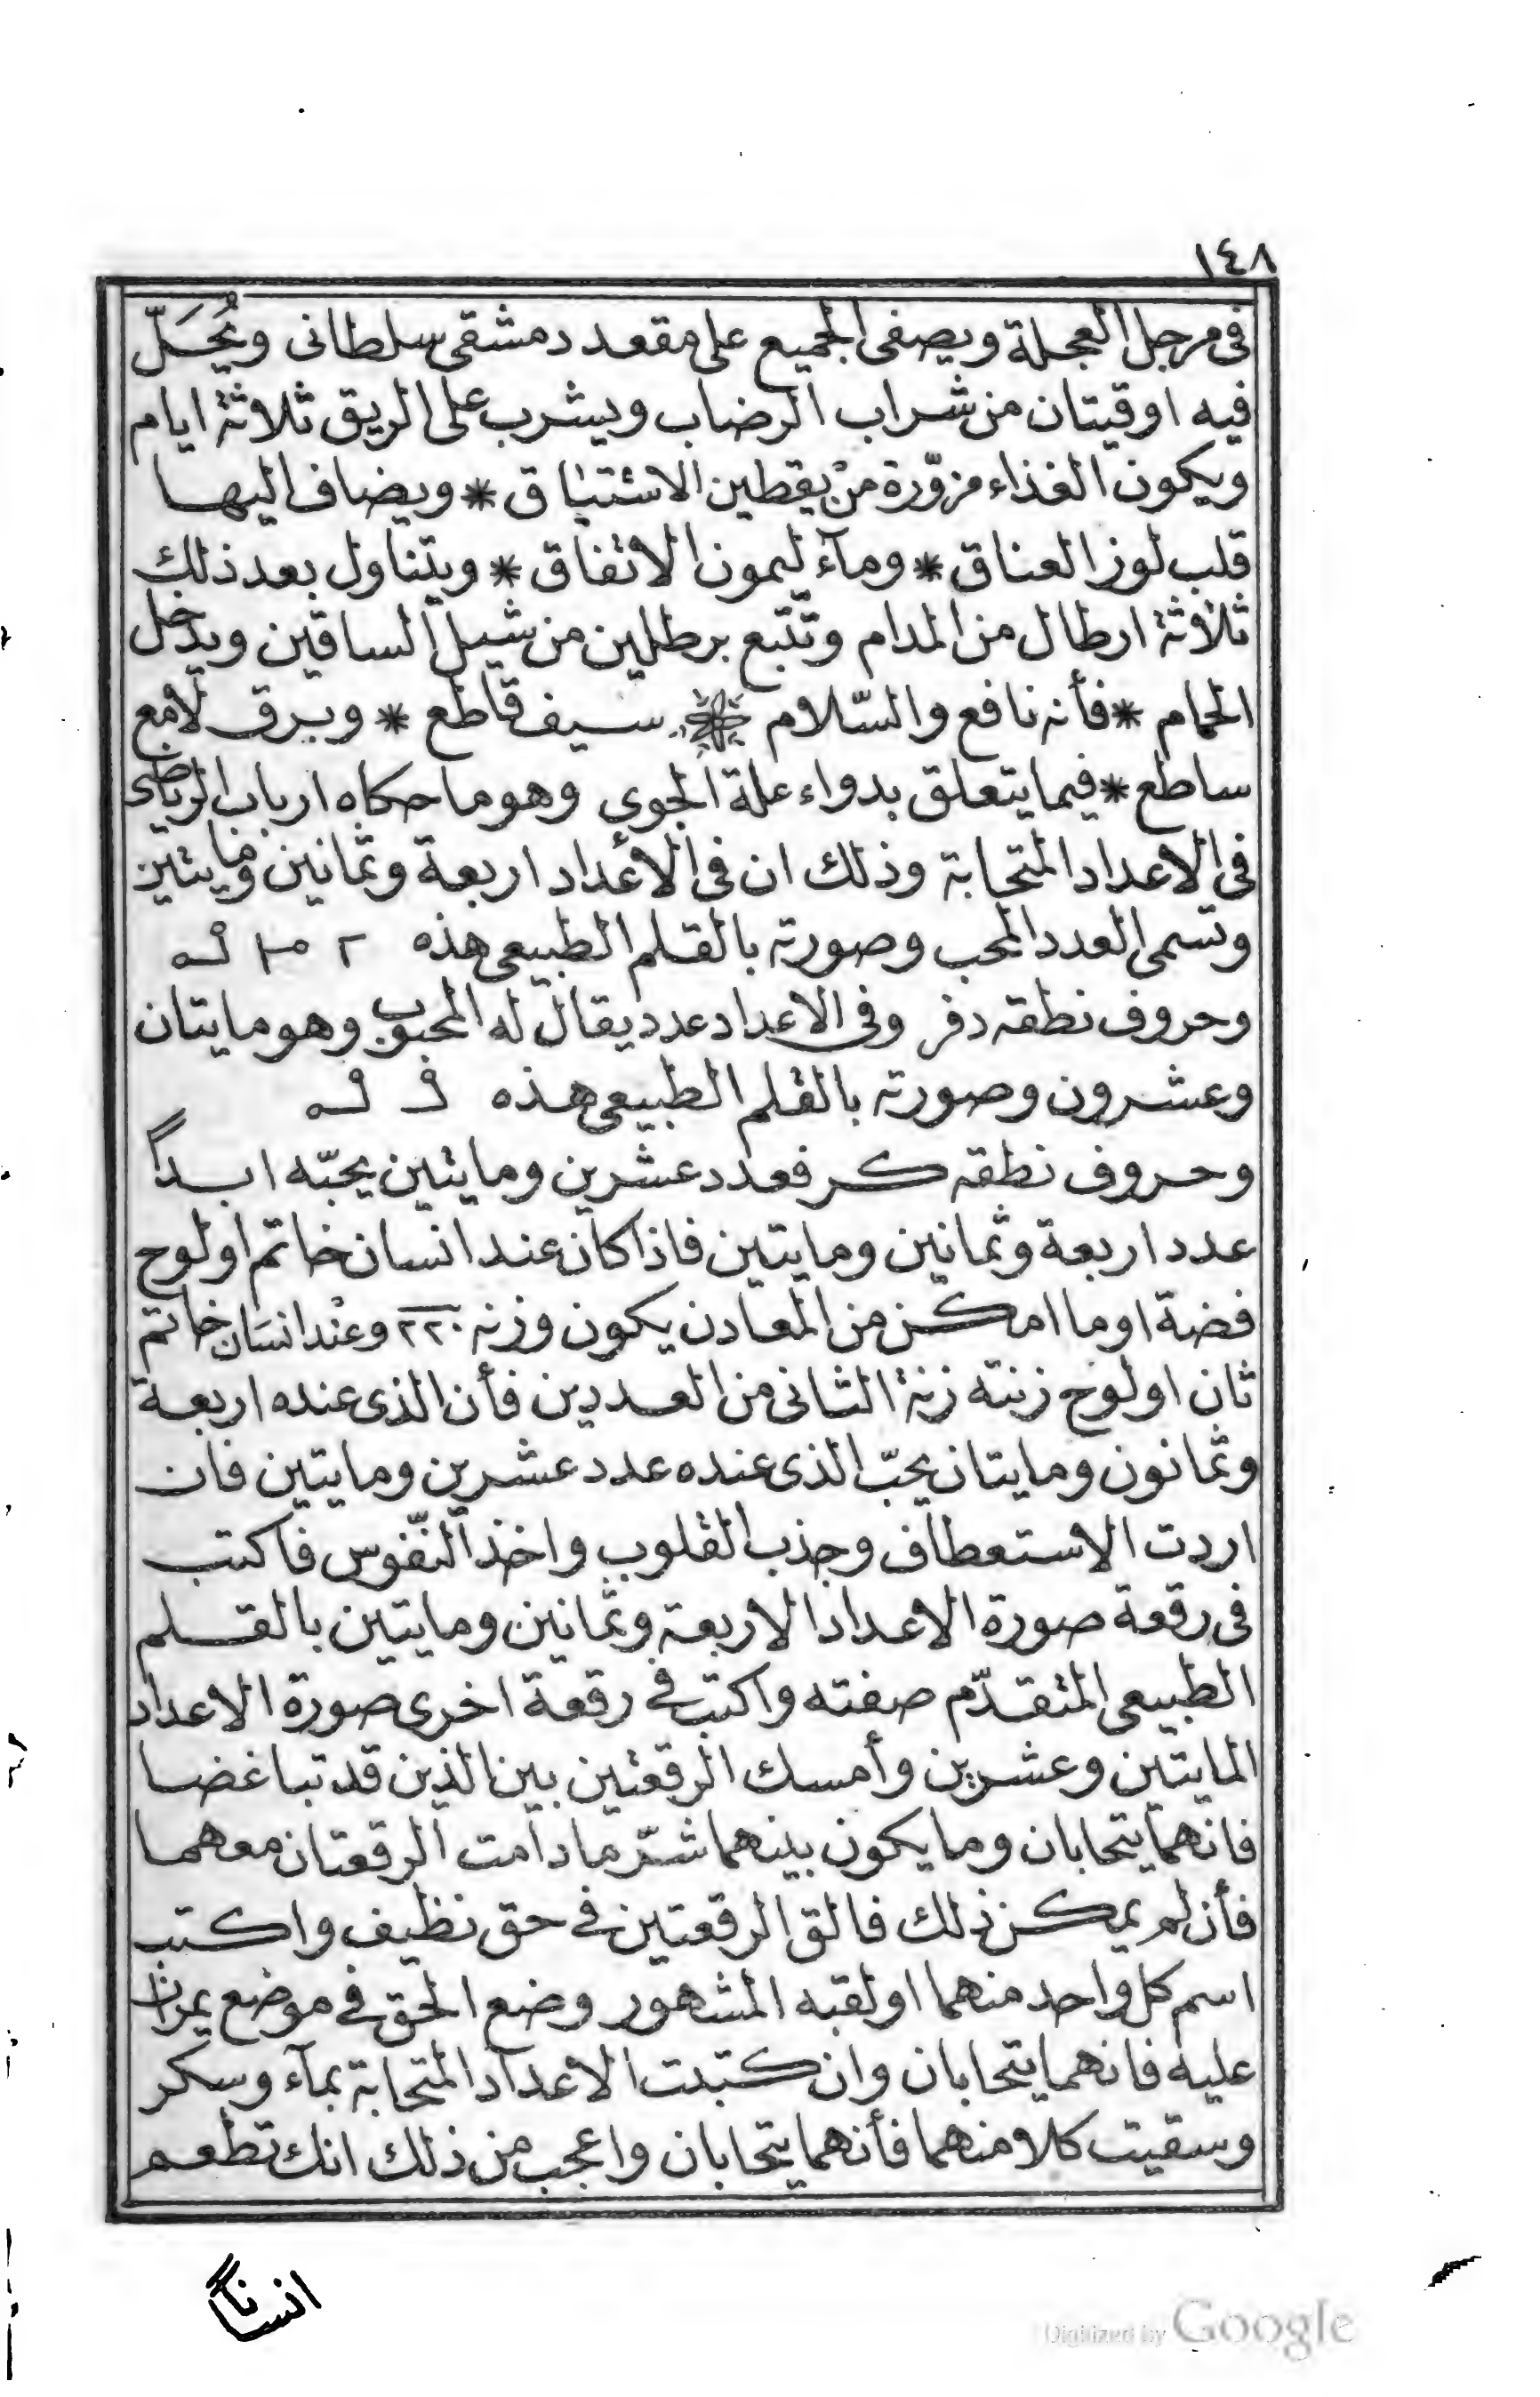 ١٤٨
فى مرجل العجلة ويصفى الجميع على مقعد دمشقى سلطانى ويُحَلّ
فيه اوقيتان من شراب الرضاب ويشرب على الريق ثلاثة ايام
ويكون الغذاء مزوّرة من يقطين الاشتياق * ويضاف اليها
قلب لوز العناق * ومآء ليمون الاتفاق * ويتناول بعد ذلك
ثلاثة ارطال من المدام وتتبع برطلين من شيل الساقين ويدخل
الحمام * فأنه نافع والسّلام سيف قاطع * وبرق لامع
ساطع * فيما يتعلق بدواء علة الجوى وهو ما حكاه ارباب الرياضى
فى الاعداد المتحابة وذلك ان فى الأعداد اربعة وثمانين ومايتين
وتسمى العدد المحب وصورته بالقلم الطبيعى هذه
وحروف نطقه دفر وفى الاعداد عدد يقال له المحبوب وهو مايتان
وعشرون وصورته بالقلم الطبيعى هذه
وحروف نطقه كر فعدد عشرين ومايتين يحبّه ابداً
عدد اربعة وثمانين ومايتين فاذا كان عند انسان خاتم او لوح
فضة او ما امكن من المعادن يكون وزنه ٢٢٠ وعند انسان خاتم
ثان او لوح زنته زنة الثانى من العددين فأن الذى عنده اربعة
وثمانون ومايتان يحبّ الذى عنده عدد عشرين ومايتين فان
اردت الاستعطاف وجذب القلوب واخذ النّفوس فاكتب
فى رقعة صورة الاعداد الاربعة وثمانين ومايتين بالقلم
الطبيعى المتقدّم صفته واكتب فى رقعة اخرى صورة الاعداد
المايتين وعشرين وأمسك الرقعتين بين الذين قد تباغضا
فانهما يتحابان وما يكون بينهما شرّ ما دامت الرقعتان معهما
فأن لم يمكن ذلك فالق الرقعتين فى حق نظيف واكتب
اسم كل واحد منهما او لقبه المشهور وضع الحق فى موضع يمران
عليه فانهما يتحابان وان كتبت الاعداد المتحابة بمآء وسكر
وسقيت كلا منهما فأنهما يتحابان واعجب من ذلك انك تطعم
انساناً
Digitized by Google